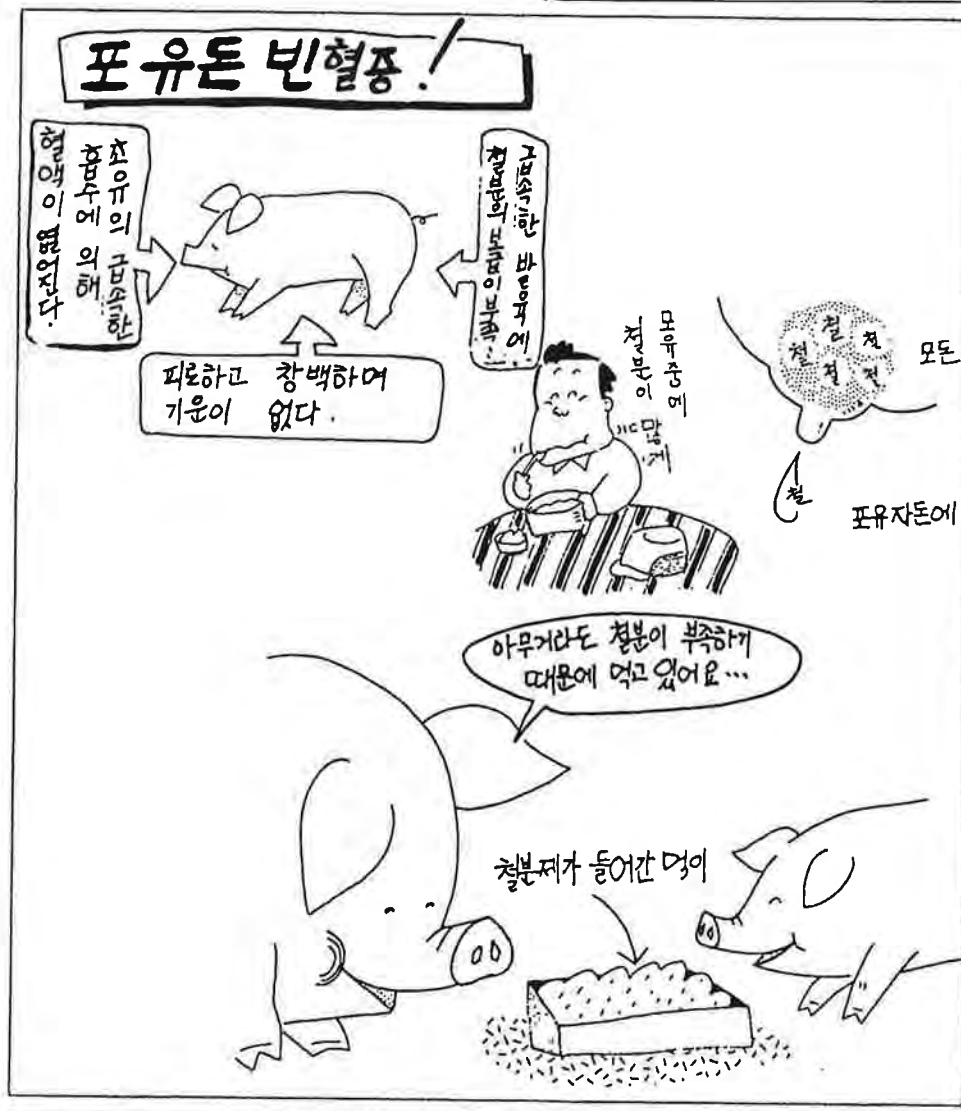 포유돈 빈혈증!
초유의 급속한
흡수에 의해
혈액이 엷어진다.
급속한 발육에
철분의 보급이 부족
피로하고 창백하며
기운이 없다.
모유중에
철분이
많게
철 철
철 철 철
모돈
철
포유자돈에
아무거라도 철분이 부족하기
때문에 먹고 있어요…
철분제가 들어간 먹이